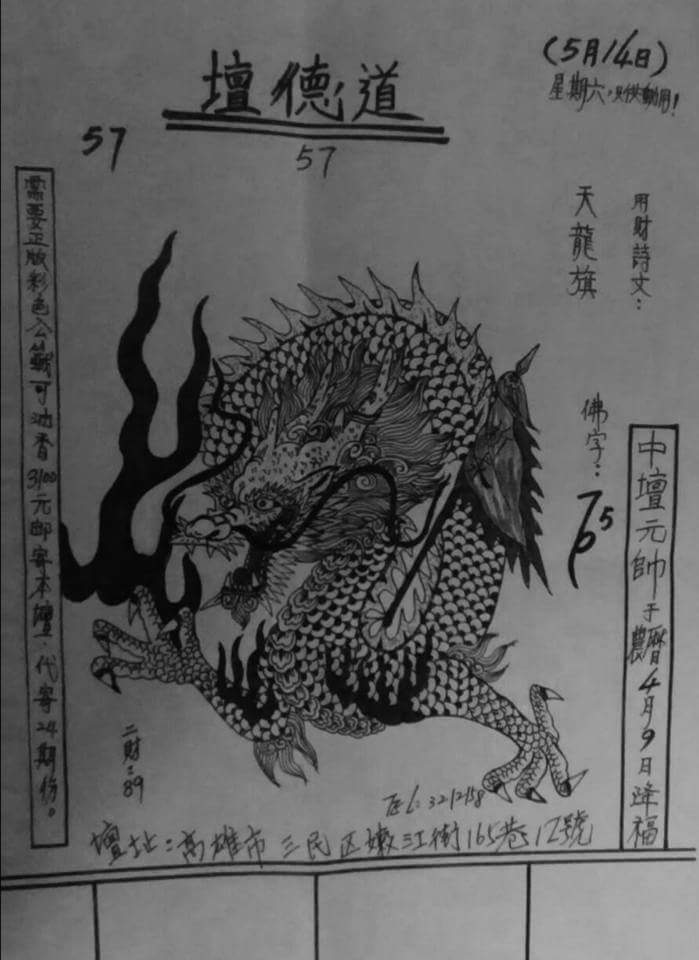 (5月14日)
星期六,只供動用!
壇德道
57
57
用財詩文：
天龍旗
佛字：
中壇元帥于農曆4月9日降福
需要正版彩色公籤可油香3100元郵寄本壇.代寄24期份。
二財：89
TEL:3212158
壇址：高雄市三民区嫩江街165巷12號